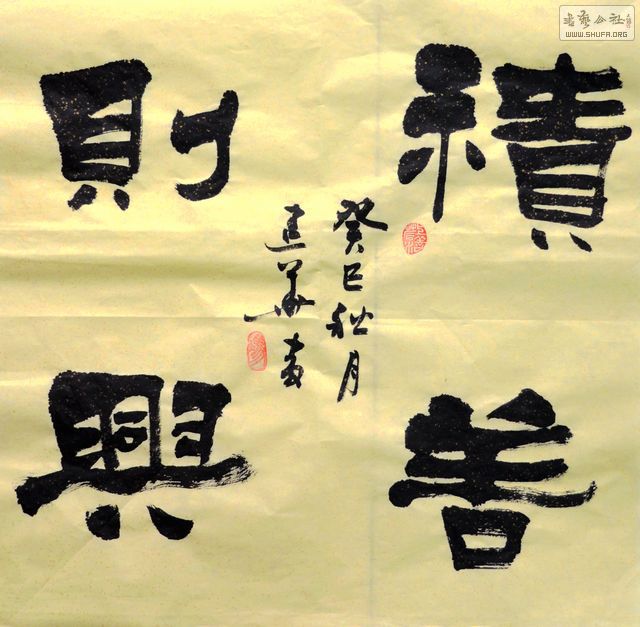 積善
則興
癸巳秋月
建華書
書藝公社
WWW.SHUFA.ORG